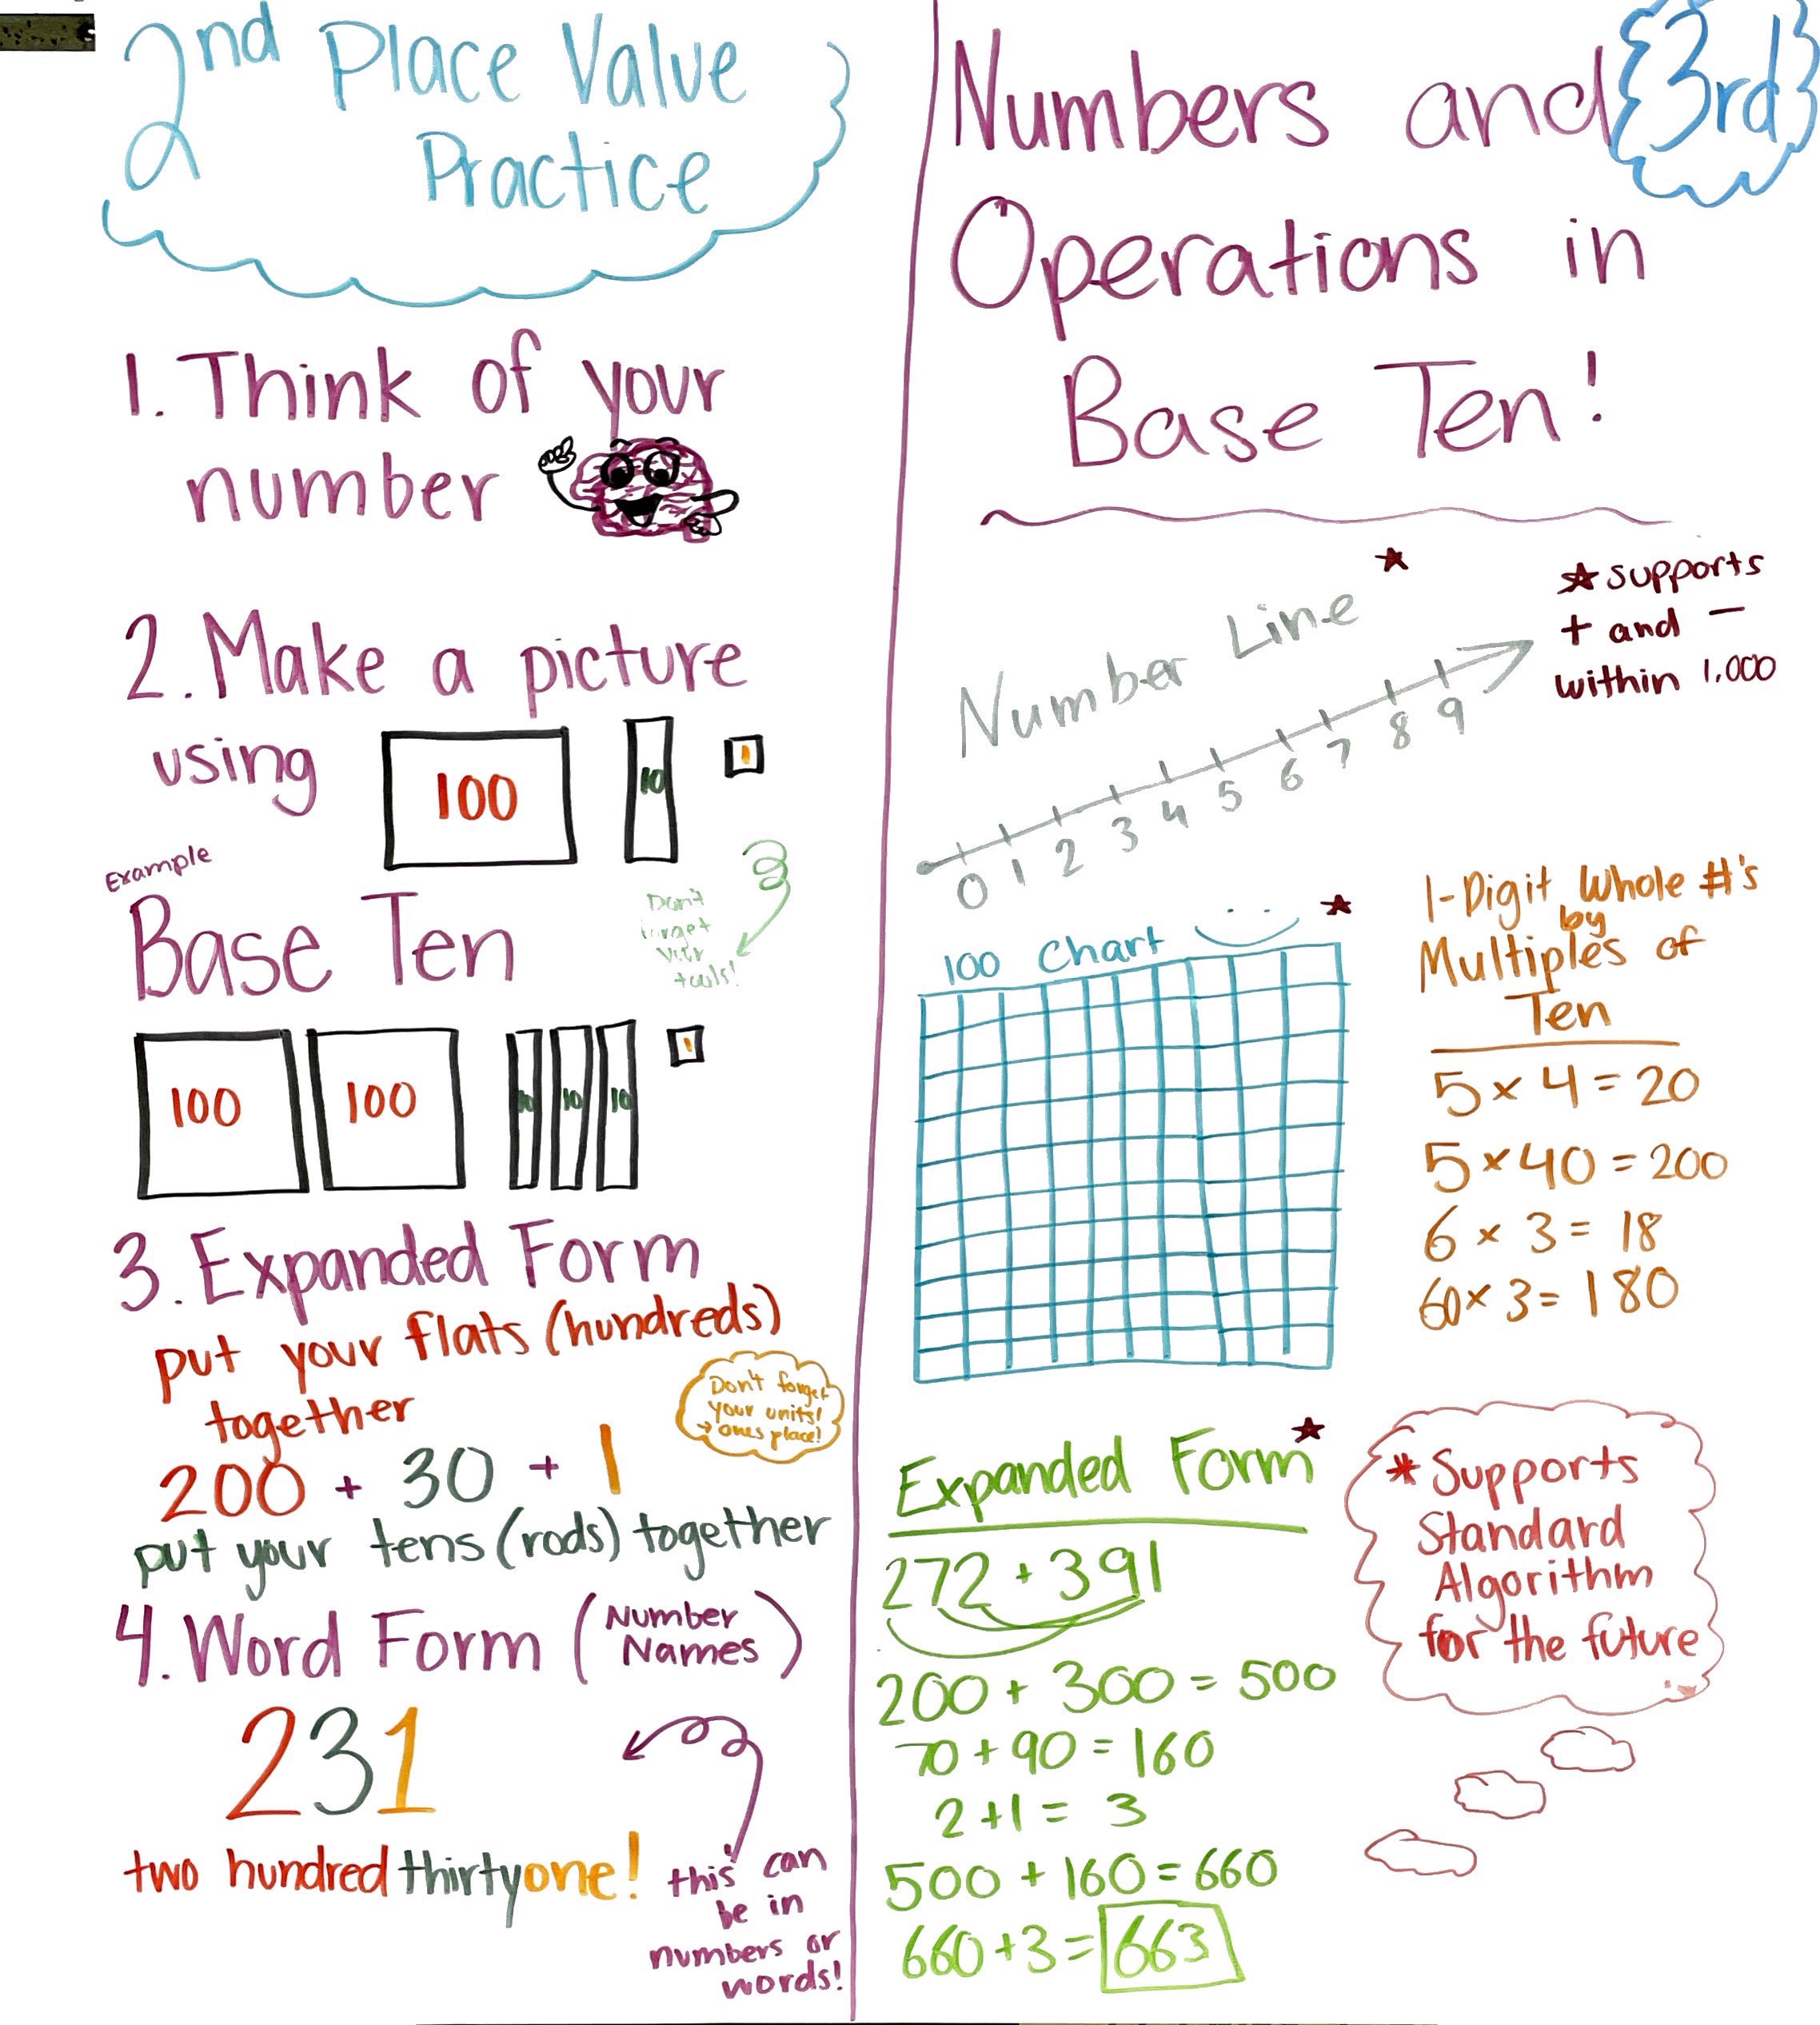 2nd Place Value
Practice
1. Think of your
number
2. Make a picture
using
100
10
1
Example
Base Ten
Don't
forget
your
tools!
100 100 10 10 10 1
3. Expanded Form
put your flats (hundreds)
together
Don't forget
your units!
→ ones place!
200 + 30 + 1
put your tens (rods) together
4. Word Form (Number
Names)
231
two hundred thirty one!
this can
be in
numbers or
words!
Numbers and {3rd}
Operations in
Base Ten!
★ supports
+ and −
within 1,000
Number Line ★
0 1 2 3 4 5 6 7 8 9
100 Chart ★
1-Digit Whole #'s
by
Multiples of
Ten
5 × 4 = 20
5 × 40 = 200
6 × 3 = 18
60 × 3 = 180
Expanded Form ★
272 + 391
200 + 300 = 500
70 + 90 = 160
2 + 1 = 3
500 + 160 = 660
660 + 3 = 663
* Supports
Standard
Algorithm
for the future